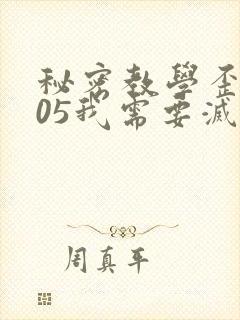 秘密教學歪
05我需要滅
周真年